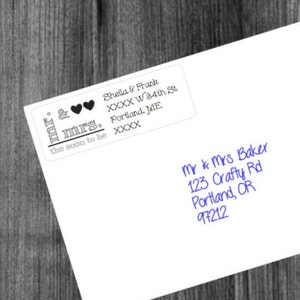 mr. & ♥♥
mrs.
the soon to be
Sheila & Frank
XXXX W 34th St.
Portland, ME
XXXX
Mr & Mrs Baker
123 Crafty Rd
Portland, OR
97212